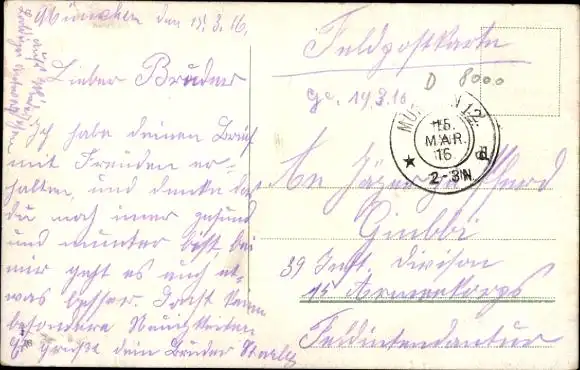 München den 15.3.16.
Lieber Bruder
Ich habe deinen Brief
mit Freuden er-
halten, und denke das
du noch imer gesund
und munter bist, bei
mir geht es auch et-
was besser. Sonst keine
besondere Neuigkeiten
Es grüßt dein Bruder
Feldpostkarte
D 8000
Ge. 19.3.16
MÜNCHEN 12.
15.
MÄR.
16.
2-3 N
An Jäger
39 Inft. Divison
15 Armeekorps
Feldintendantur